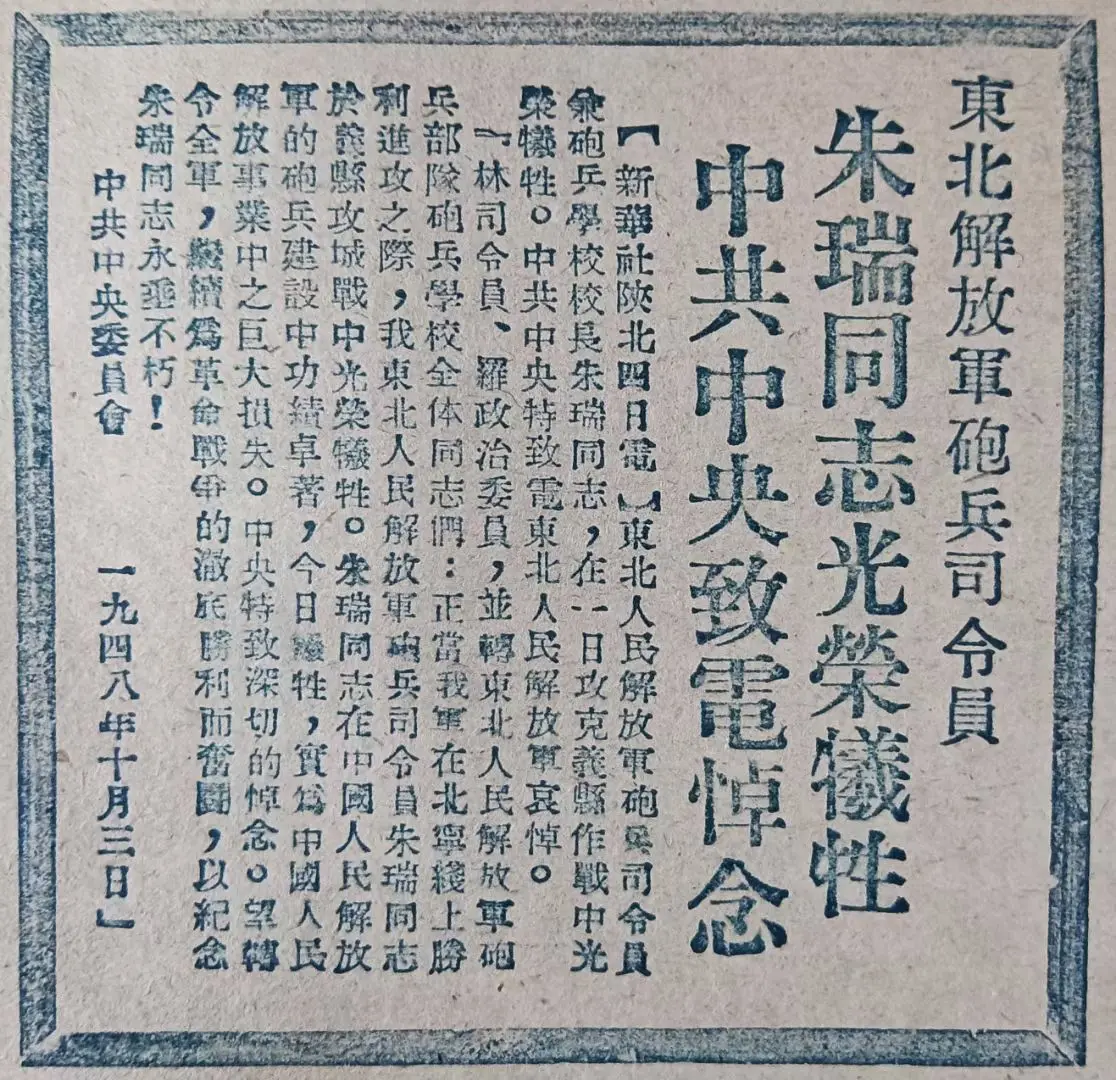 東北解放軍砲兵司令員
朱瑞同志光榮犧牲
中共中央致電悼念
【新華社陝北四日電】東北人民解放軍砲兵司令員
兼砲兵學校校長朱瑞同志，在一日攻克義縣作戰中光
榮犧牲。中共中央特致電東北人民解放軍哀悼。
「林司令員、羅政治委員，並轉東北人民解放軍砲
兵部隊砲兵學校全体同志們：正當我軍在北寧綫上勝
利進攻之際，我東北人民解放軍砲兵司令員朱瑞同志
於義縣攻城戰中光榮犧牲。朱瑞同志在中國人民解放
軍的砲兵建設中功績卓著，今日犧牲，實爲中國人民
解放事業中之巨大損失。中央特致深切的悼念。望轉
令全軍，繼續爲革命戰爭的澈底勝利而奮鬪，以紀念
朱瑞同志永垂不朽！
中共中央委員會　一九四八年十月三日」